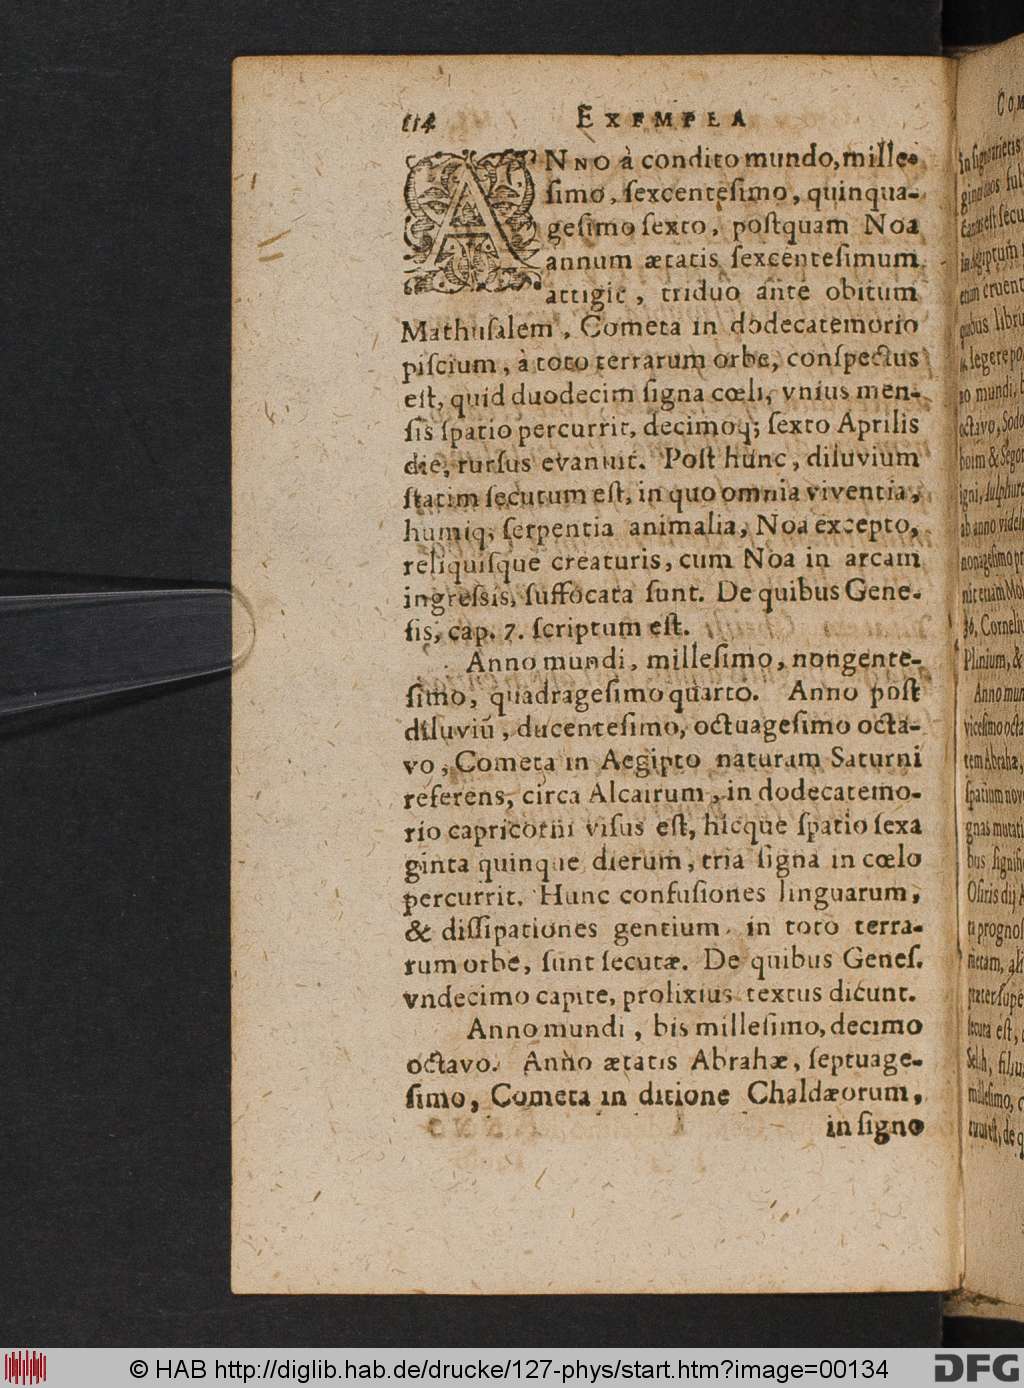 114 EXEMPLA
ANNO à condito mundo, mille-
ſimo, ſexcenteſimo, quinqua-
geſimo ſexto, poſtquam Noa
annum ætatis ſexcenteſimum
attigit, triduo ante obitum
Mathuſalem, Cometa in dodecatemorio
piſcium, à toto terrarum orbe, conſpectus
eſt, quid duodecim ſigna cœli, vnius men-
ſis ſpatio percurrit, decimoq; ſexto Aprilis
die, rurſus evanuit. Poſt hunc, diluvium
ſtatim ſecutum eſt, in quo omnia viventia,
humiq; ſerpentia animalia, Noa excepto,
reliquiſque creaturis, cum Noa in arcam
ingreſsis, ſuffocata ſunt. De quibus Gene-
ſis, cap. 7. ſcriptum eſt.
Anno mundi, milleſimo, nongente-
ſimo, quadrageſimo quarto. Anno poſt
diluviū, ducenteſimo, octuageſimo octa-
vo, Cometa in Aegipto naturam Saturni
referens, circa Alcairum, in dodecatemo-
rio capricorni viſus eſt, hicque ſpatio ſexa
ginta quinque dierum, tria ſigna in cœlo
percurrit. Hunc confuſiones linguarum,
& diſſipationes gentium in toto terra-
rum orbe, ſunt ſecutæ. De quibus Geneſ.
vndecimo capite, prolixius textus dicunt.
Anno mundi, bis milleſimo, decimo
octavo. Anno ætatis Abrahæ, ſeptuage-
ſimo, Cometa in ditione Chaldæorum,
in ſigno
© HAB http://diglib.hab.de/drucke/127-phys/start.htm?image=00134
DFG